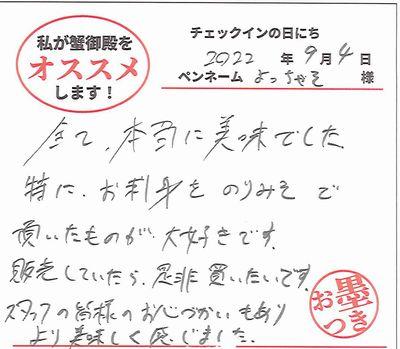 私が蟹御殿を
オススメ
します！
チェックインの日にち
2022 年 9月 4日
ペンネーム よっちゃん 様
全て、本当に美味でした
特に、お刺身をのりみそで
頂いたものが大好きです。
販売していたら、是非買いたいです。
スタッフの皆様のお心づかいもあり
より美味しく感じました。
お墨つき